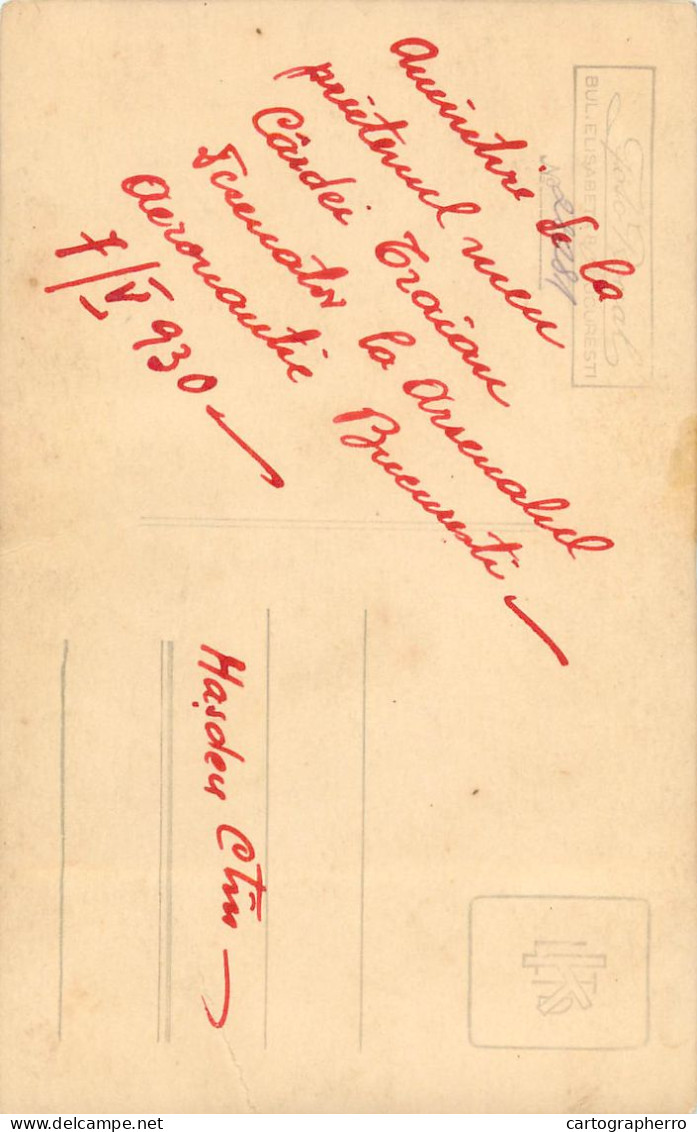 Amintire de la
prietenul meu
Cârdei Traian
Screnator la Arsenalul
Aeronautic București
7/V 930
Hașdeu Ctin
Foto Royal
BUL. ELISABETA BUCUREȘTI
No
cartographerro